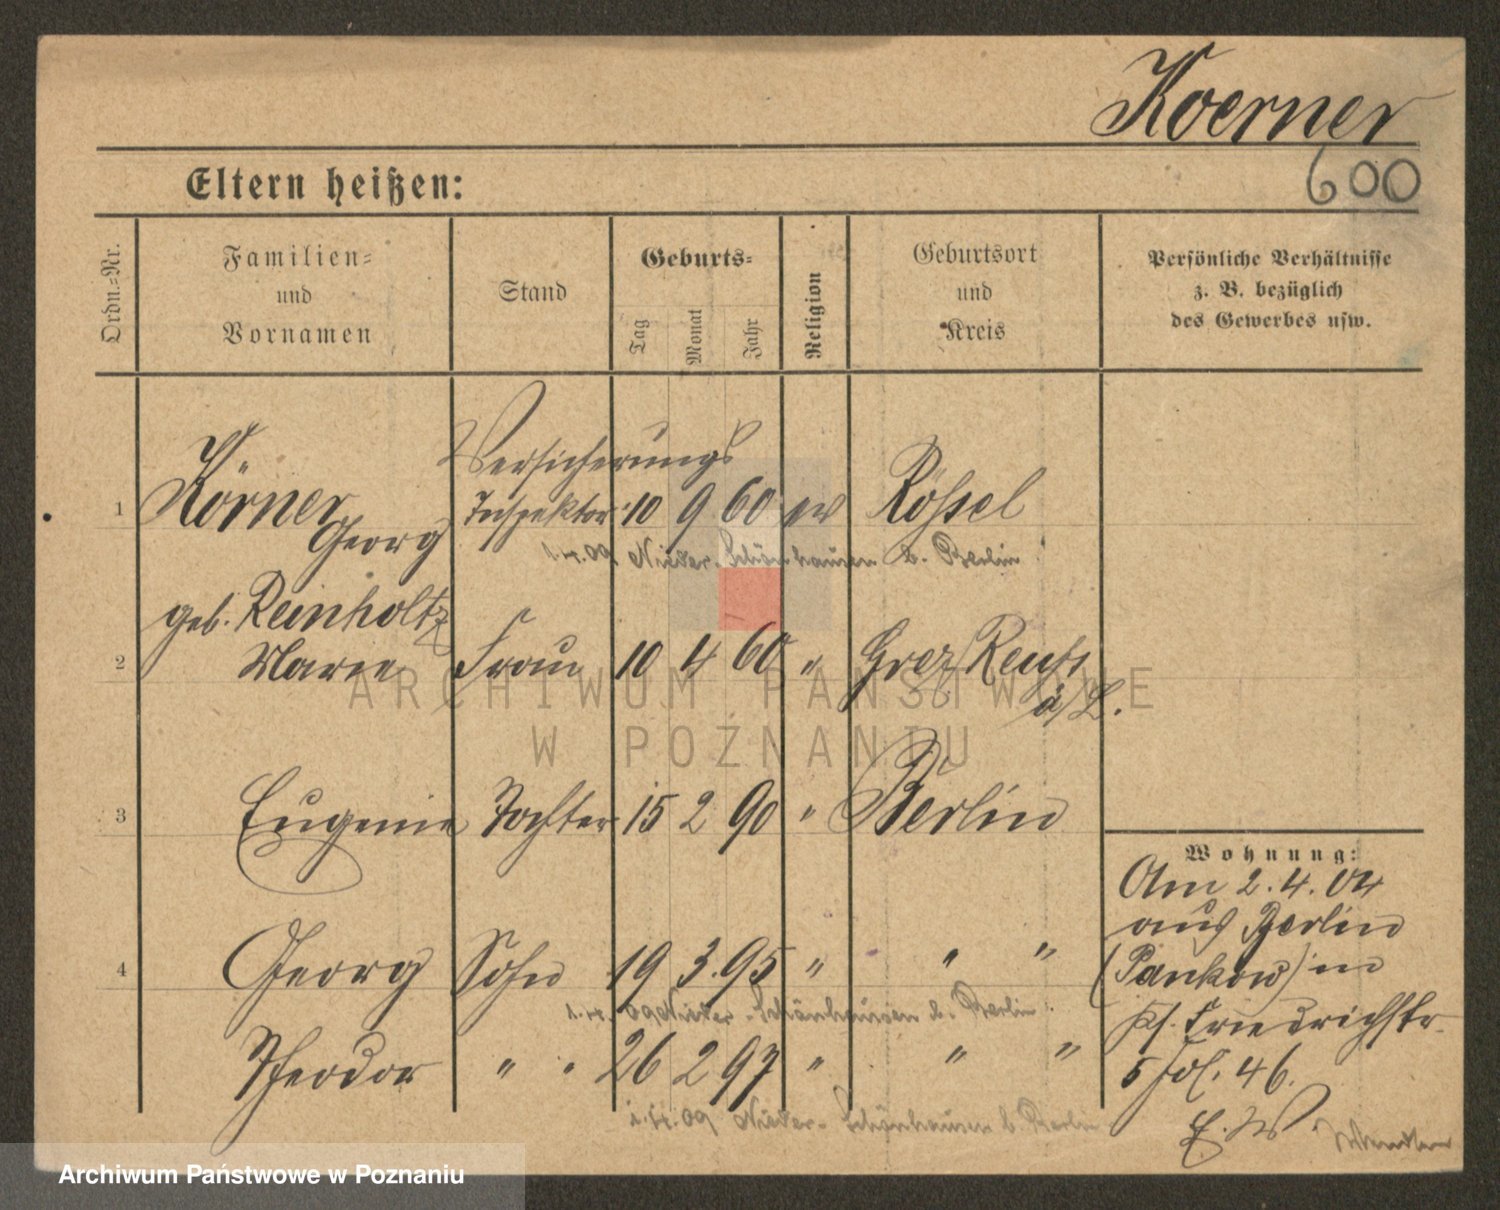 Koerner
600
Eltern heißen:
Ordn.-Nr.
Familien-
und
Vornamen
Stand
Geburts-
Tag
Monat
Jahr
Religion
Geburtsort
und
Kreis
Persönliche Verhältnisse
z. B. bezüglich
des Gewerbes usw.
Versicherungs
1 Körner Georg Inspektor 10 9 60 ev Rößel
1.4.09 Nieder-Schönhausen b. Berlin
geb. Reinholtz
2 Marie Frau 10 4 60 " Greiz Reuß
ä/L.
3 Eugenie Tochter 15 2 90 " Berlin
Wohnung:
Am 2.4.04
aus Berlin
(Pankow) in
Friedrichstr.
5
46.
4 Georg Sohn 19 3. 95 " " "
1.4.09 Nieder-Schönhausen b. Berlin
Theodor " " 26 2 97 " " "
1.4.09 Nieder-Schönhausen b. Berlin
ARCHIWUM PAŃSTWOWE
W POZNANIU
Archiwum Państwowe w Poznaniu